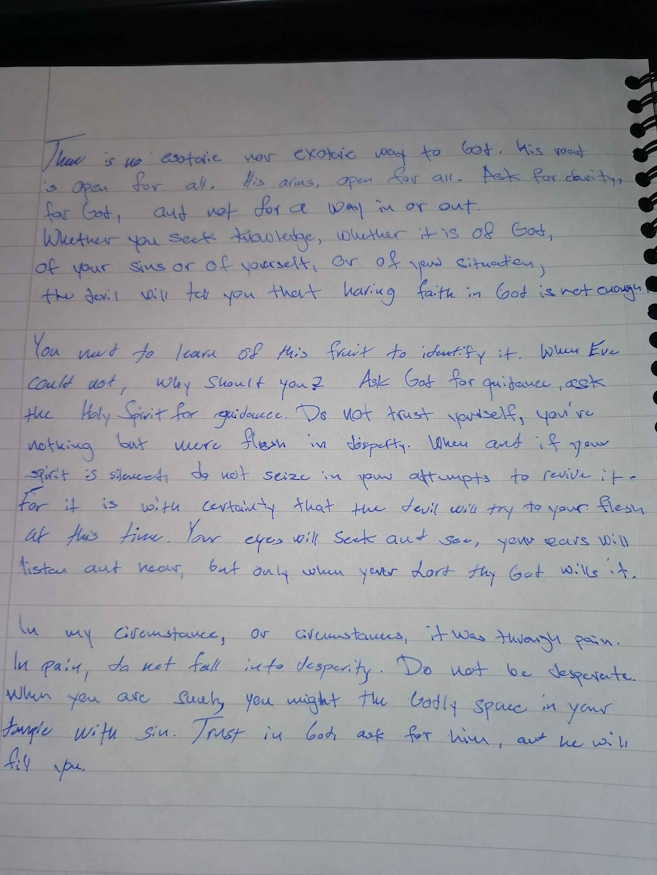 There is no esoteric nor exoteric way to God. His road
is open for all. His arms, open for all. Ask for clarity,
for God, and not for a way in or out.
Whether you seek knowledge, whether it is of God,
of your sins or of yourself, or of your situation,
the devil will tell you that having faith in God is not enough
You need to learn of this fruit to identify it. When Eve
could not, why should you? Ask God for guidance, ask
the Holy Spirit for guidance. Do not trust yourself, you're
nothing but mere flesh in disperty. When and if your
spirit is silenced, do not seize in your attempts to revive it.
For it is with certainty that the devil will try to your flesh
at this time. Your eyes will seek and see, your ears will
listen and hear, but only when your Lord thy God wills it.
In my circumstance, or circumstances, it was through pain.
In pain, do not fall into desperity. Do not be desperate.
When you are you might the Godly space in your
temple with sin. Trust in God, ask for him, and he will
fill you.